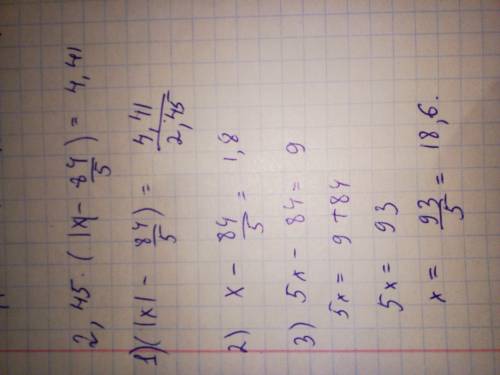 2,45 · (|x| - 84/5) = 4,41
1) (|x| - 84/5) = 4,41/2,45
2) x - 84/5 = 1,8
3) 5x - 84 = 9
5x = 9 + 84
5x = 93
x = 93/5 = 18,6.